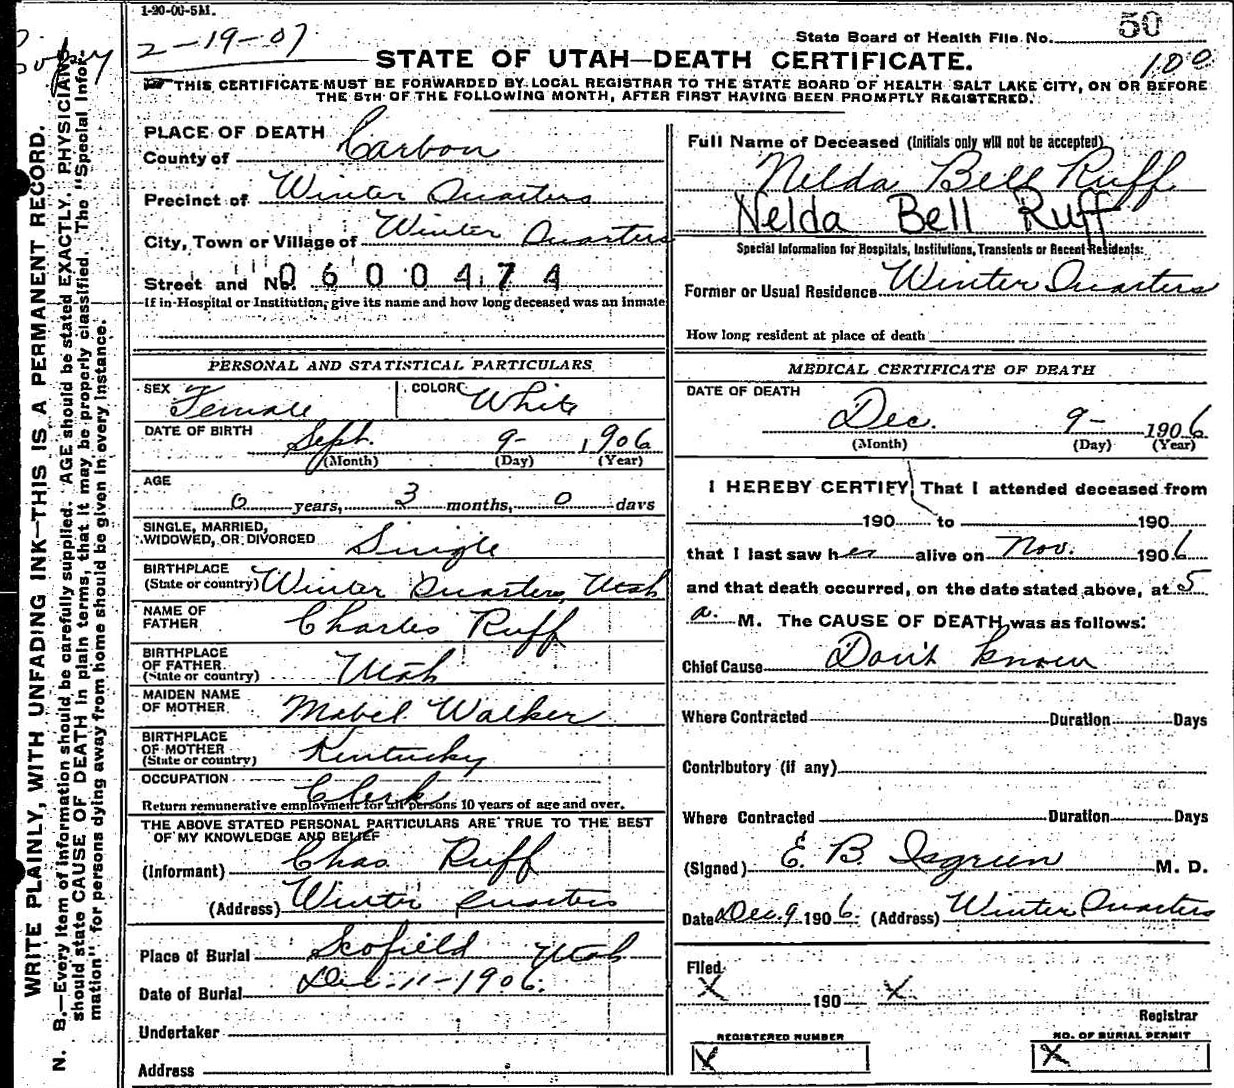 1-20-00-5M.
2-19-07
State Board of Health File No. 50
100
STATE OF UTAH—DEATH CERTIFICATE.
THIS CERTIFICATE MUST BE FORWARDED BY LOCAL REGISTRAR TO THE STATE BOARD OF HEALTH SALT LAKE CITY, ON OR BEFORE
THE 5TH OF THE FOLLOWING MONTH, AFTER FIRST HAVING BEEN PROMPTLY REGISTERED.
WRITE PLAINLY, WITH UNFADING INK—THIS IS A PERMANENT RECORD.
N. B.—Every item of information should be carefully supplied. AGE should be stated EXACTLY. PHYSICIANS
should state CAUSE OF DEATH in plain terms, that it may be properly classified. The "Special Infor-
mation" for persons dying away from home should be given in every instance.
PLACE OF DEATH
County of Carbon
Precinct of Winter Quarters
City, Town or Village of Winter Quarters
Street and No. 0600474
If in Hospital or Institution, give its name and how long deceased was an inmate
PERSONAL AND STATISTICAL PARTICULARS
SEX Female COLOR White
DATE OF BIRTH Sept. 9- 1906
(Month) (Day) (Year)
AGE
0 years, 3 months, 0 days
SINGLE, MARRIED,
WIDOWED, OR DIVORCED Single
BIRTHPLACE
(State or country) Winter Quarters, Utah
NAME OF
FATHER Charles Ruff
BIRTHPLACE
OF FATHER
(State or country) Utah
MAIDEN NAME
OF MOTHER Mabel Walker
BIRTHPLACE
OF MOTHER
(State or country) Kentucky
OCCUPATION Clerk
Return remunerative employment for all persons 10 years of age and over.
THE ABOVE STATED PERSONAL PARTICULARS ARE TRUE TO THE BEST
OF MY KNOWLEDGE AND BELIEF
(Informant) Chas. Ruff
(Address) Winter Quarters
Place of Burial Scofield Utah
Date of Burial Dec-11-1906.
Undertaker
Address
Full Name of Deceased (Initials only will not be accepted)
Nelda Bell Ruff
Nelda Bell Ruff
Special Information for Hospitals, Institutions, Transients or Recent Residents:
Former or Usual Residence Winter Quarters
How long resident at place of death
MEDICAL CERTIFICATE OF DEATH
DATE OF DEATH
Dec. 9- 1906
(Month) (Day) (Year)
I HEREBY CERTIFY, That I attended deceased from
190 to 190
that I last saw her alive on Nov. 1906
and that death occurred, on the date stated above, at 5
a. M. The CAUSE OF DEATH was as follows:
Chief Cause Don't know
Where Contracted Duration Days
Contributory (if any)
Where Contracted Duration Days
(Signed) E. B. Isgreen M. D.
Date Dec. 9 1906. (Address) Winter Quarters
Filed
X 190 X
Registrar
REGISTERED NUMBER
X
NO. OF BURIAL PERMIT
X